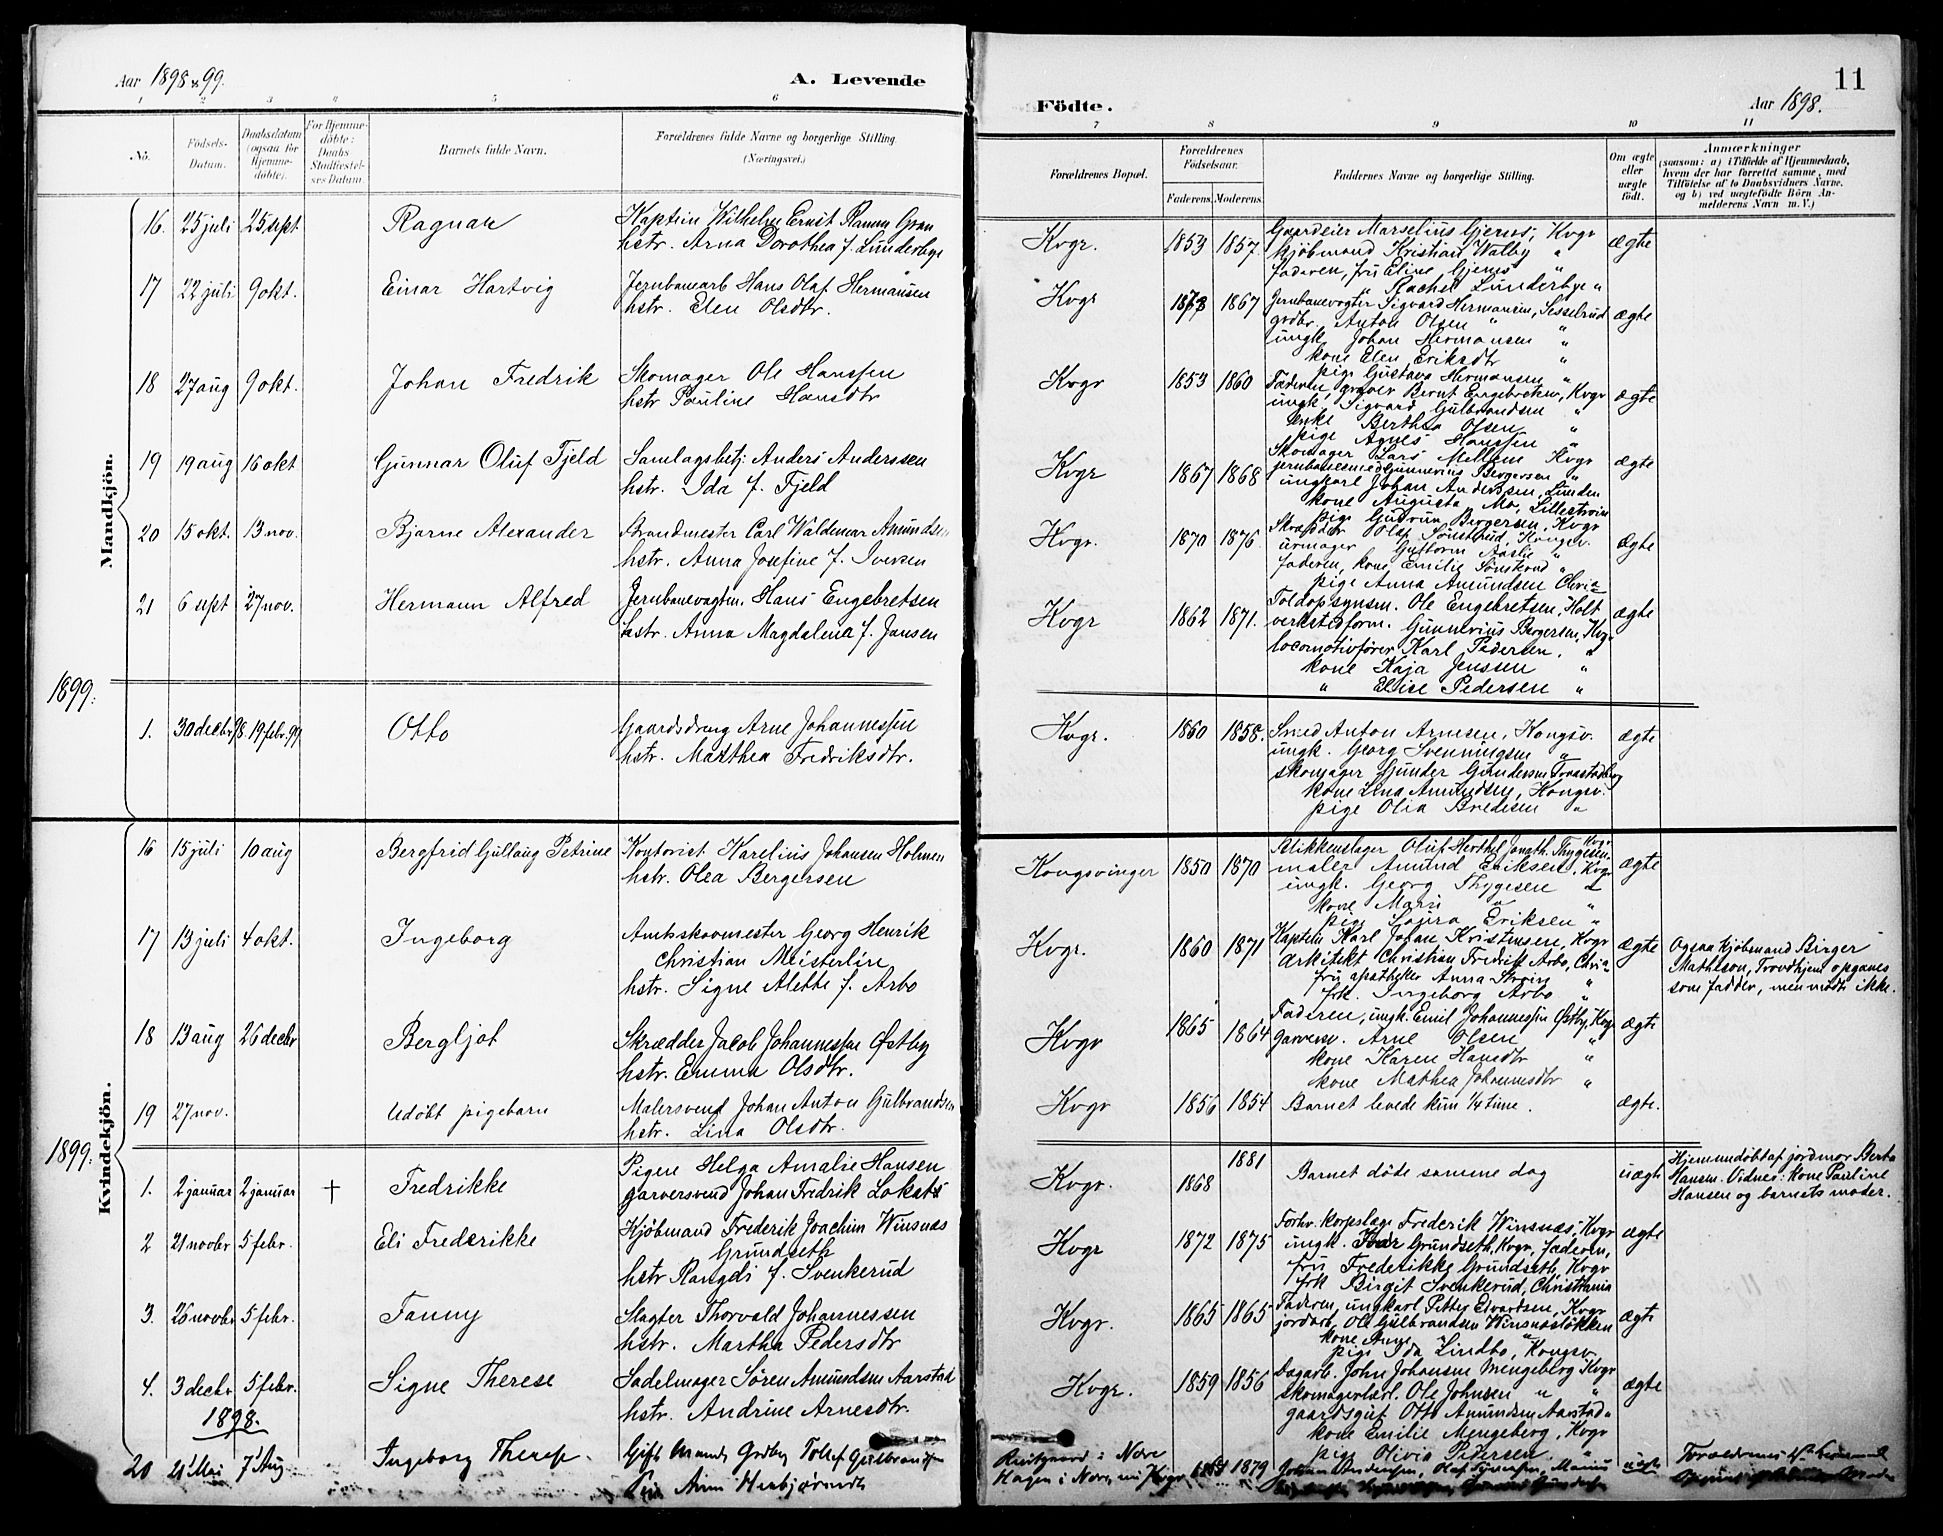 Aar 1898 & 99.
A. Levende
1 2 3 4 5 6
No.
Födsels-
Datum.
Daabsdatum
(ogsaa for
Hjemme-
döbte).
For Hjemme-
döbte:
Daabs
Stadfæstel-
ses Datum.
Barnets fulde Navn.
Forældrenes fulde Navne og borgerlige Stilling.
(Næringsvei.)
Mandkjön.
16. 25 juli 25 sept Ragnar Kaptein Wilhelm Ernst
hstr. Arna Dorothea f. Lunderbye
17 22 juli 9 okt. Einar Hartvig Jernbanearb Hans Olaf Hermansen
hstr. Elen Olsdtr.
18 27 aug 9 okt. Johan Fredrik Skomager Ole Hanssen
hstr Pauline Hansdtr
19 19 aug 16 okt Gunnar Oluf Fjeld Samlagsbetj. Anders Anderssen
hstr. Ida f. Fjeld
20 15 okt. 13 nov. Bjarne Alexander Brandmester Carl Waldemar Amundsen
hstr. Anna Josefine f. Iversen
21 6 sept 27 nov. Hermann Alfred Jernbanevogtm. Hans Engebretsen
hstr. Anna Magdalena f. Jansen
1899.
1. 30 decbr 98. 19 febr. 99 Otto Gaardsdreng Arne Johannessen
hstr. Marthea Fredriksdtr.
Kvindekjön.
16 15 juli 10 aug Bergfrid Gullaug Petrine Kontorist Karelius Johansen Holmen
hstr. Olea Bergersen
17 13 juli 4 okt. Ingeborg Amtsskovmester Georg Henrik
Christian Meisterlin
hstr. Signe Alette f. Arbo
18 13 aug 26 decbr Bergljot Skrædder Jacob Johannessen Østby
hstr. Emma Olsdtr.
19 27 nov. Udöbt pigebarn Malersvend Johan Anton Gulbrandsen
hstr. Lina Olsdtr.
1899.
1. 2 januar 2 januar † Fredrikke Pigen Helga Amalie Hansen
garversvend Johan Fredrik
2 21 novbr 5 febr. Eli Frederikke Kjöbmand Frederik Joachim Winsnæs
Grundseth
hstr Rangdi f. Svenkerud
3. 26 novbr 5 febr. Fanny Slagter Thorvald Johannessen
hstr. Martha Pedersdtr
4. 3 decbr 5 febr. Signe Therese Sadelmager Sören Amundsen Aarstad
hstr. Andrine Arnesdtr.
1898.
20 21 Mai 7 Aug Ingeborg Therese. Gift Mand, Grdbr Tollef Gulbrandsen
Pige Anne Herbjørnsdtr
Födte.
11
Aar 1898.
7 8 9 10 11
Forældrenes Bopæl.
Forældrenes
Födselsaar.
Faderens. Moderens.
Faddernes Navne og borgerlige Stilling.
Om ægte
eller
uægte
födt.
Anmærkninger
(saasom: a) i Tilfælde af Hjemmedaab,
hvem der har forrettet samme, med
Tilföielse af to Daabsvidners Navne.
og b) ved uægtefödte Börn An-
melderens Navn m. V.)
Kvgr. 1853 1857 Gaardeier Marselius Gjems, Kvgr ægte
kjöbmand Kristian Walby "
faderen, fru Eline Gjems "
" Rachel Lunderbye "
Kvgr 1873 1867 Jernbanevogter Sigvard Hermansen, Sesselrud ægte
grdbr. Anton Olsen "
ungk. Johan Hermansen "
kone Elen Eriksdtr "
pige Gustava Hermansen "
Kvgr 1853 1860 Faderen, graver Bernt Engebretsen, Kvgr ægte
ungk. Sigvard Gulbrandsen "
enke Berthea Olsen "
pige Agnes Hanssen "
Kvgr 1867 1868 Skomager Lars Mellem Kvgr ægte
jernbanesmed Gunnerius Bergersen "
ungkarl Johan Anderssen, Lunden
kone Augusta Mo, Lillestrøm
pige Gudrun Bergersen, Kvgr
Kvgr. 1870 1876 Skrædder Olaf Sønsterud, Kongsv. ægte
urmager Guttorm Aaslie "
faderen, kone Emilie Sønsterud "
pige Anna Amundsen Chria
Kvgr 1862 1871. Toldopsynsm. Ole Engebretsen, Holt ægte
verkstedform. Gunnerius Bergersen, Kvgr
locomotivförer Karl Pedersen, "
kone Kaja Jenssen "
" Elise Pedersen "
Kvgr. 1860 1858. Smed Anton Arnesen, Kongsv. ægte
ungk. Georg Svenningsen "
skomager Gunder Gundersen
kone Lina Amundsen, Kongsv.
pige Olia Bredesen "
Kongsvinger 1850 1870 Blikkenslager Oluf Herthel Jonath. Thygesen. Kvgr ægte
maler Amund Eriksen, Kvgr
ungk. Georg Thygesen "
kone Marie " "
pige Laura Eriksen "
Kvgr. 1860 1871 Kaptein Karl Johan Kristensen, Kvgr ægte
Arkitekt Christian Fredrik Arbo, Chria
fru apotheker Anna Strøm "
frk. Ingeborg Arbo "
Ogsaa kjöbmand Birger
Matheson, Trondhjem opgaves
som fadder, men mødte ikke.
Kvgr 1865 1864 Faderen, ungk. Emil Johannessen Østby, Kvgr ægte
garversv. Arne Olsen "
kone Karen Hansdtr "
kone Mathea Johannesdtr "
Kvgr 1856 1854 Barnet levede kun 1/4 time. ægte.
Kvgr. 1868 1881 Barnet döde samme dag uægte
Hjemmedöbt af jordmor Berta
Hansen. Vidner: kone Pauline
Hansen og barnets moder.
Kvgr 1872 1875 Forhv. korpslæge Frederik Winsnæs, Kvgr ægte
ungk. Ivar Grundseth, Kvgr, faderen,
fru Frederikke Grundseth, Kvgr
frk Birgit Svenkerud, Christiania
Kvgr. 1865 1865 Faderen, ungkarl Petter Edvardsen, Kvgr ægte
jordarb. Ole Gulbrandsen Winsnæsløkken
kone Anne "
pige Ida Lindbo, Kongsv.
Kvgr. 1859 1856 Dagarb. John Johansen Mengeberg, Kvgr ægte
skomagerlærl. Ole Johnsen " "
gaardsgut Otto Amundsen Aarstad "
kone Emilie Mengeberg, Kvgr
pige Olivia Pedersen "
i Nore
Hagen i Nore, nu Kvgr 1879 Johan Andersen, Olaf uægte Forældrenes